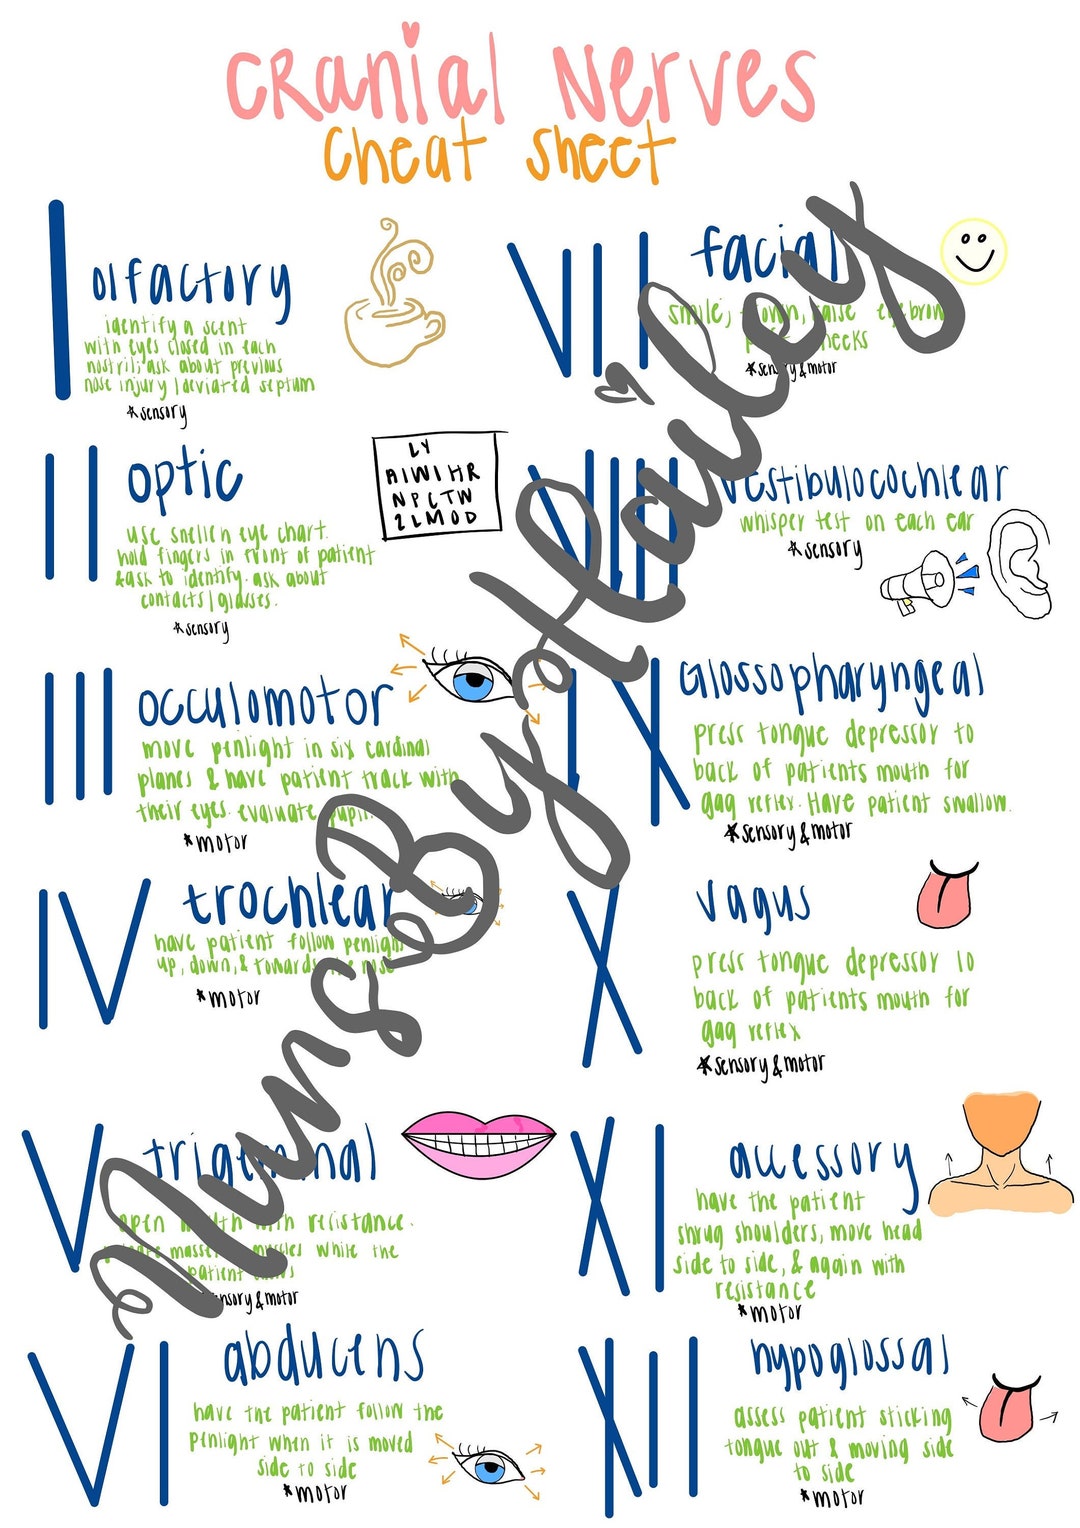 cranial nerves
cheat sheet
I
olfactory
identify a scent
with eyes closed in each
nostril; ask about previous
nose injury/deviated septum
*sensory
II
optic
use snellen eye chart.
hold fingers in front of patient
& ask to identify. ask about
contacts/glasses.
*sensory
LY
AIWIHR
NPCTW
2LMOD
III
occulomotor
move penlight in six cardinal
planes & have patient track with
their eyes. evaluate pupil.
*motor
IV
trochlear
have patient follow penlight
up, down, & towards the nose
*motor
V
trigeminal
open mouth with resistance.
masseter muscles while the
patient
sensory & motor
VI
abducens
have the patient follow the
penlight when it is moved
side to side
*motor
VII
facial
smile, frown, raise eyebrow
puff cheeks
*sensory & motor
VIII
vestibulocochlear
whisper test on each ear
*sensory
IX
Glossopharyngeal
press tongue depressor to
back of patients mouth for
gag reflex. Have patient swallow.
*sensory & motor
X
vagus
press tongue depressor to
back of patients mouth for
gag reflex
*sensory & motor
XI
accessory
have the patient
shrug shoulders, move head
side to side, & again with
resistance
*motor
XII
hypoglossal
assess patient sticking
tongue out & moving side
to side
*motor
NursByHailey